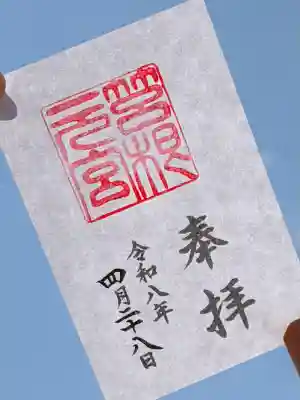 筥根
元宮
奉拝
令和八年
四月二十八日